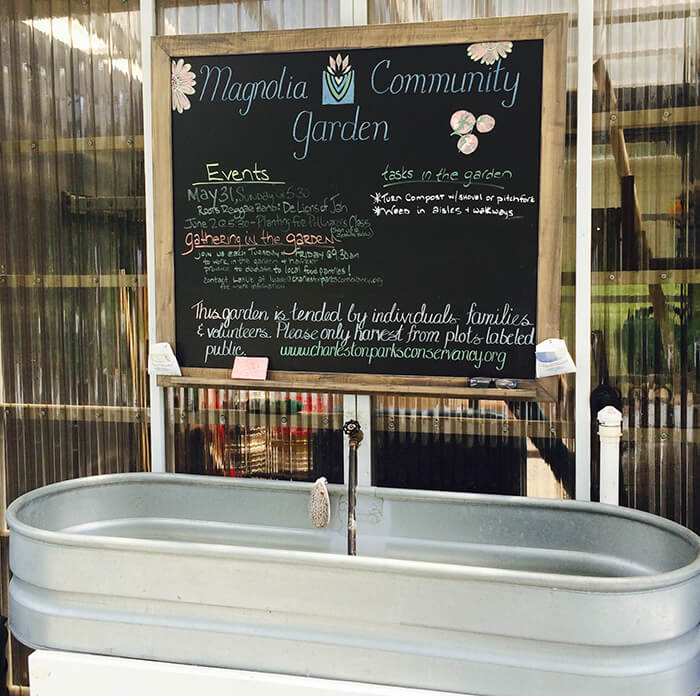 Magnolia Community
Garden
Events
May 31, Sunday @ 5:30
Roots Reggae Band: De Lions of Jah
June 2 @ 5:30 - Planting for Pollinators Class
gathering in the garden
Join us each Tuesday & Friday @ 9:30am
to work in the garden & harvest
produce to donate to local food pantries!
contact Leslie at
for more information
tasks in the garden
*Turn Compost w/shovel or pitchfork
*Weed in Aisles + walkways
This garden is tended by individuals, families
& volunteers. Please only harvest from plots labeled
public. www.charlestonparksconservancy.org